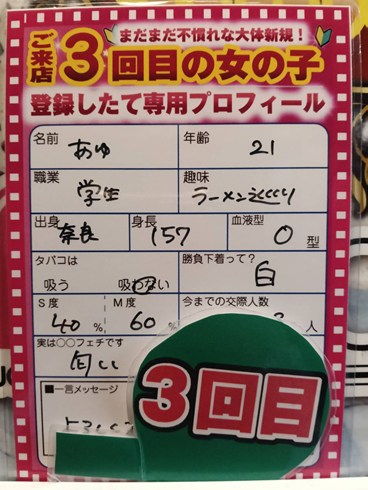 まだまだ不慣れな大体新規!
ご来店3回目の女の子
登録したて専用プロフィール
名前 あゆ 年齢 21
職業 学生 趣味 ラーメン
出身 奈良 身長 157 血液型 O 型
タバコは 勝負下着って?
吸う 吸わない 白
S度 M度 今までの交際人数
40 % 60 % 人
実は○○フェチです
匂い
■一言メッセージ
3回目